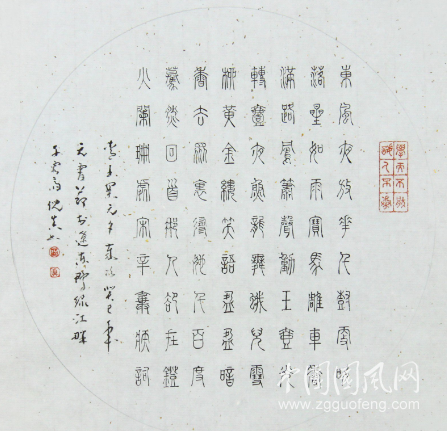 東風夜放華千尌更吹
落星如雨寶馬雕車香
滿路鳳簫聲動玉壺光
轉壹夜魚龍舞蛾兒雪
柳黃金縷笑語盈盈暗
香去眾裏尋他千百度
驀然回首那人卻在鐙
火闌珊處宋辛棄疾詞
青玉案元夕歲次癸巳年
元宵節書
中国国风网
www.zgguofeng.com